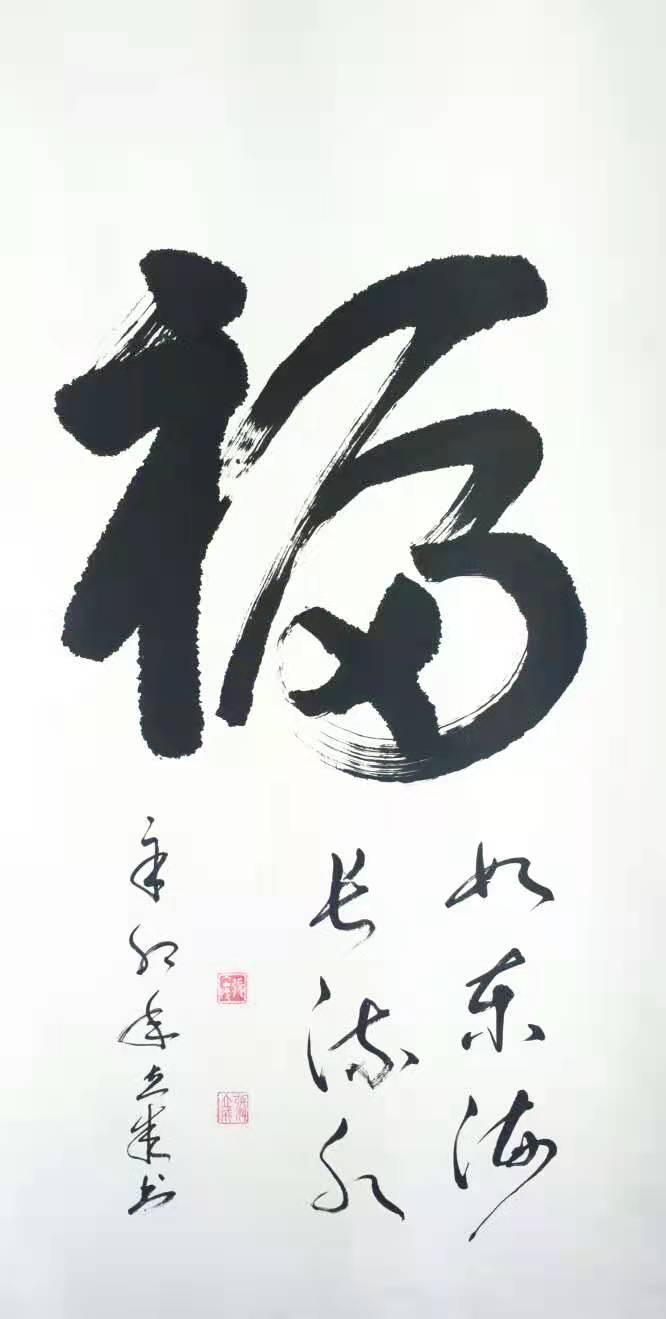 福
如东海
长流水
辛卯年立书